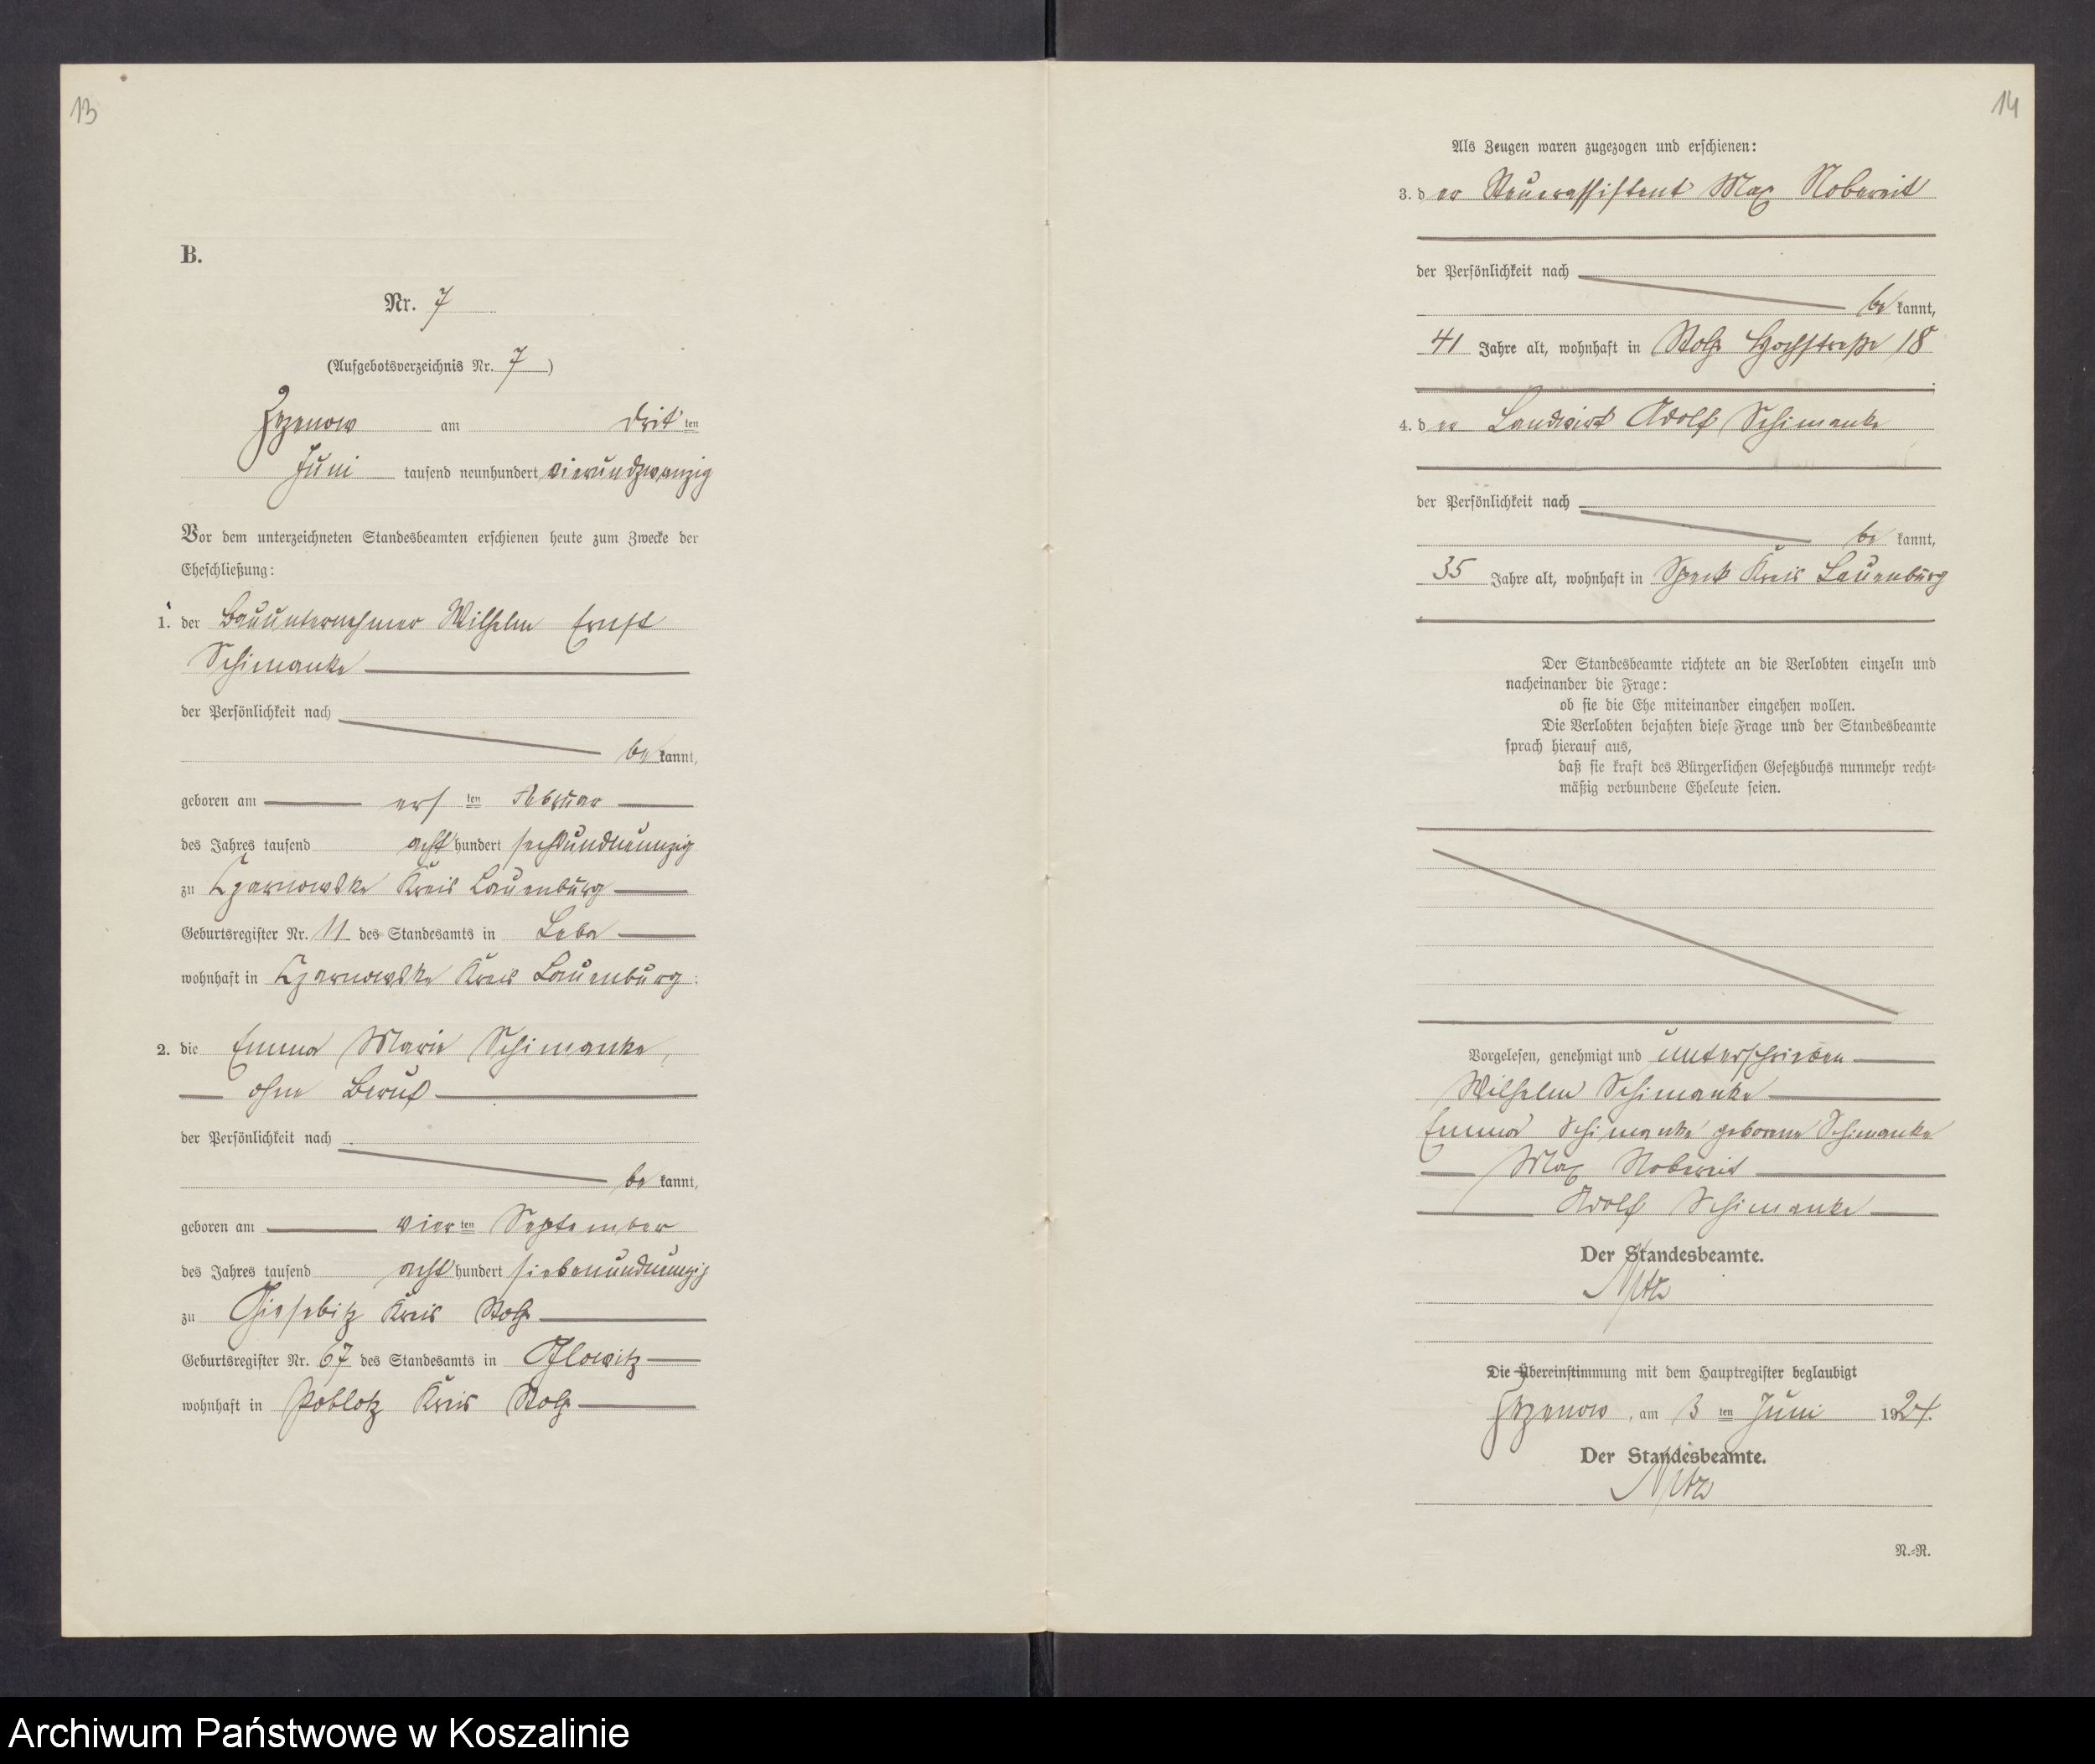 13
B.
Nr. 7
(Aufgebotsverzeichnis Nr. 7)
Zezenow am drit ten
Juni tausend neunhundert vierundzwanzig
Vor dem unterzeichneten Standesbeamten erschienen heute zum Zwecke der
Eheschließung:
1. der Bauunternehmer Wilhelm Ernst
Schimanke
der Persönlichkeit nach
be kannt,
geboren am ers ten Februar
des Jahres tausend acht hundert sechsundneunzig
zu Czarnowske Kreis Lauenburg
Geburtsregister Nr. 11 des Standesamts in Leba
wohnhaft in Czarnowske Kreis Lauenburg
2. die Emma Marie Schimanke,
ohne Beruf
der Persönlichkeit nach
be kannt,
geboren am vier ten September
des Jahres tausend acht hundert siebenundneunzig
zu Giesebitz Kreis Stolp
Geburtsregister Nr. 67 des Standesamts in Glowitz
wohnhaft in Poblotz Kreis Stolp
14
Als Zeugen waren zugezogen und erschienen:
3. d er Steuerassistent Max Nobereit
der Persönlichkeit nach
be kannt,
41 Jahre alt, wohnhaft in Stolp Hochstraße 18
4. d er Landwirt Adolf Schimanke
der Persönlichkeit nach
be kannt,
35 Jahre alt, wohnhaft in Speck Kreis Lauenburg
Der Standesbeamte richtete an die Verlobten einzeln und
nacheinander die Frage:
ob sie die Ehe miteinander eingehen wollen.
Die Verlobten bejahten diese Frage und der Standesbeamte
sprach hierauf aus,
daß sie kraft des Bürgerlichen Gesetzbuchs nunmehr recht-
mäßig verbundene Eheleute seien.
Vorgelesen, genehmigt und unterschrieben
Wilhelm Schimanke
Emma Schimanke geborene Schimanke
Max Nobereit
Adolf Schimanke
Der Standesbeamte.
Die Übereinstimmung mit dem Hauptregister beglaubigt
Zezenow, am 3 ten Juni 1924.
Der Standesbeamte.
N.-R.
Archiwum Państwowe w Koszalinie